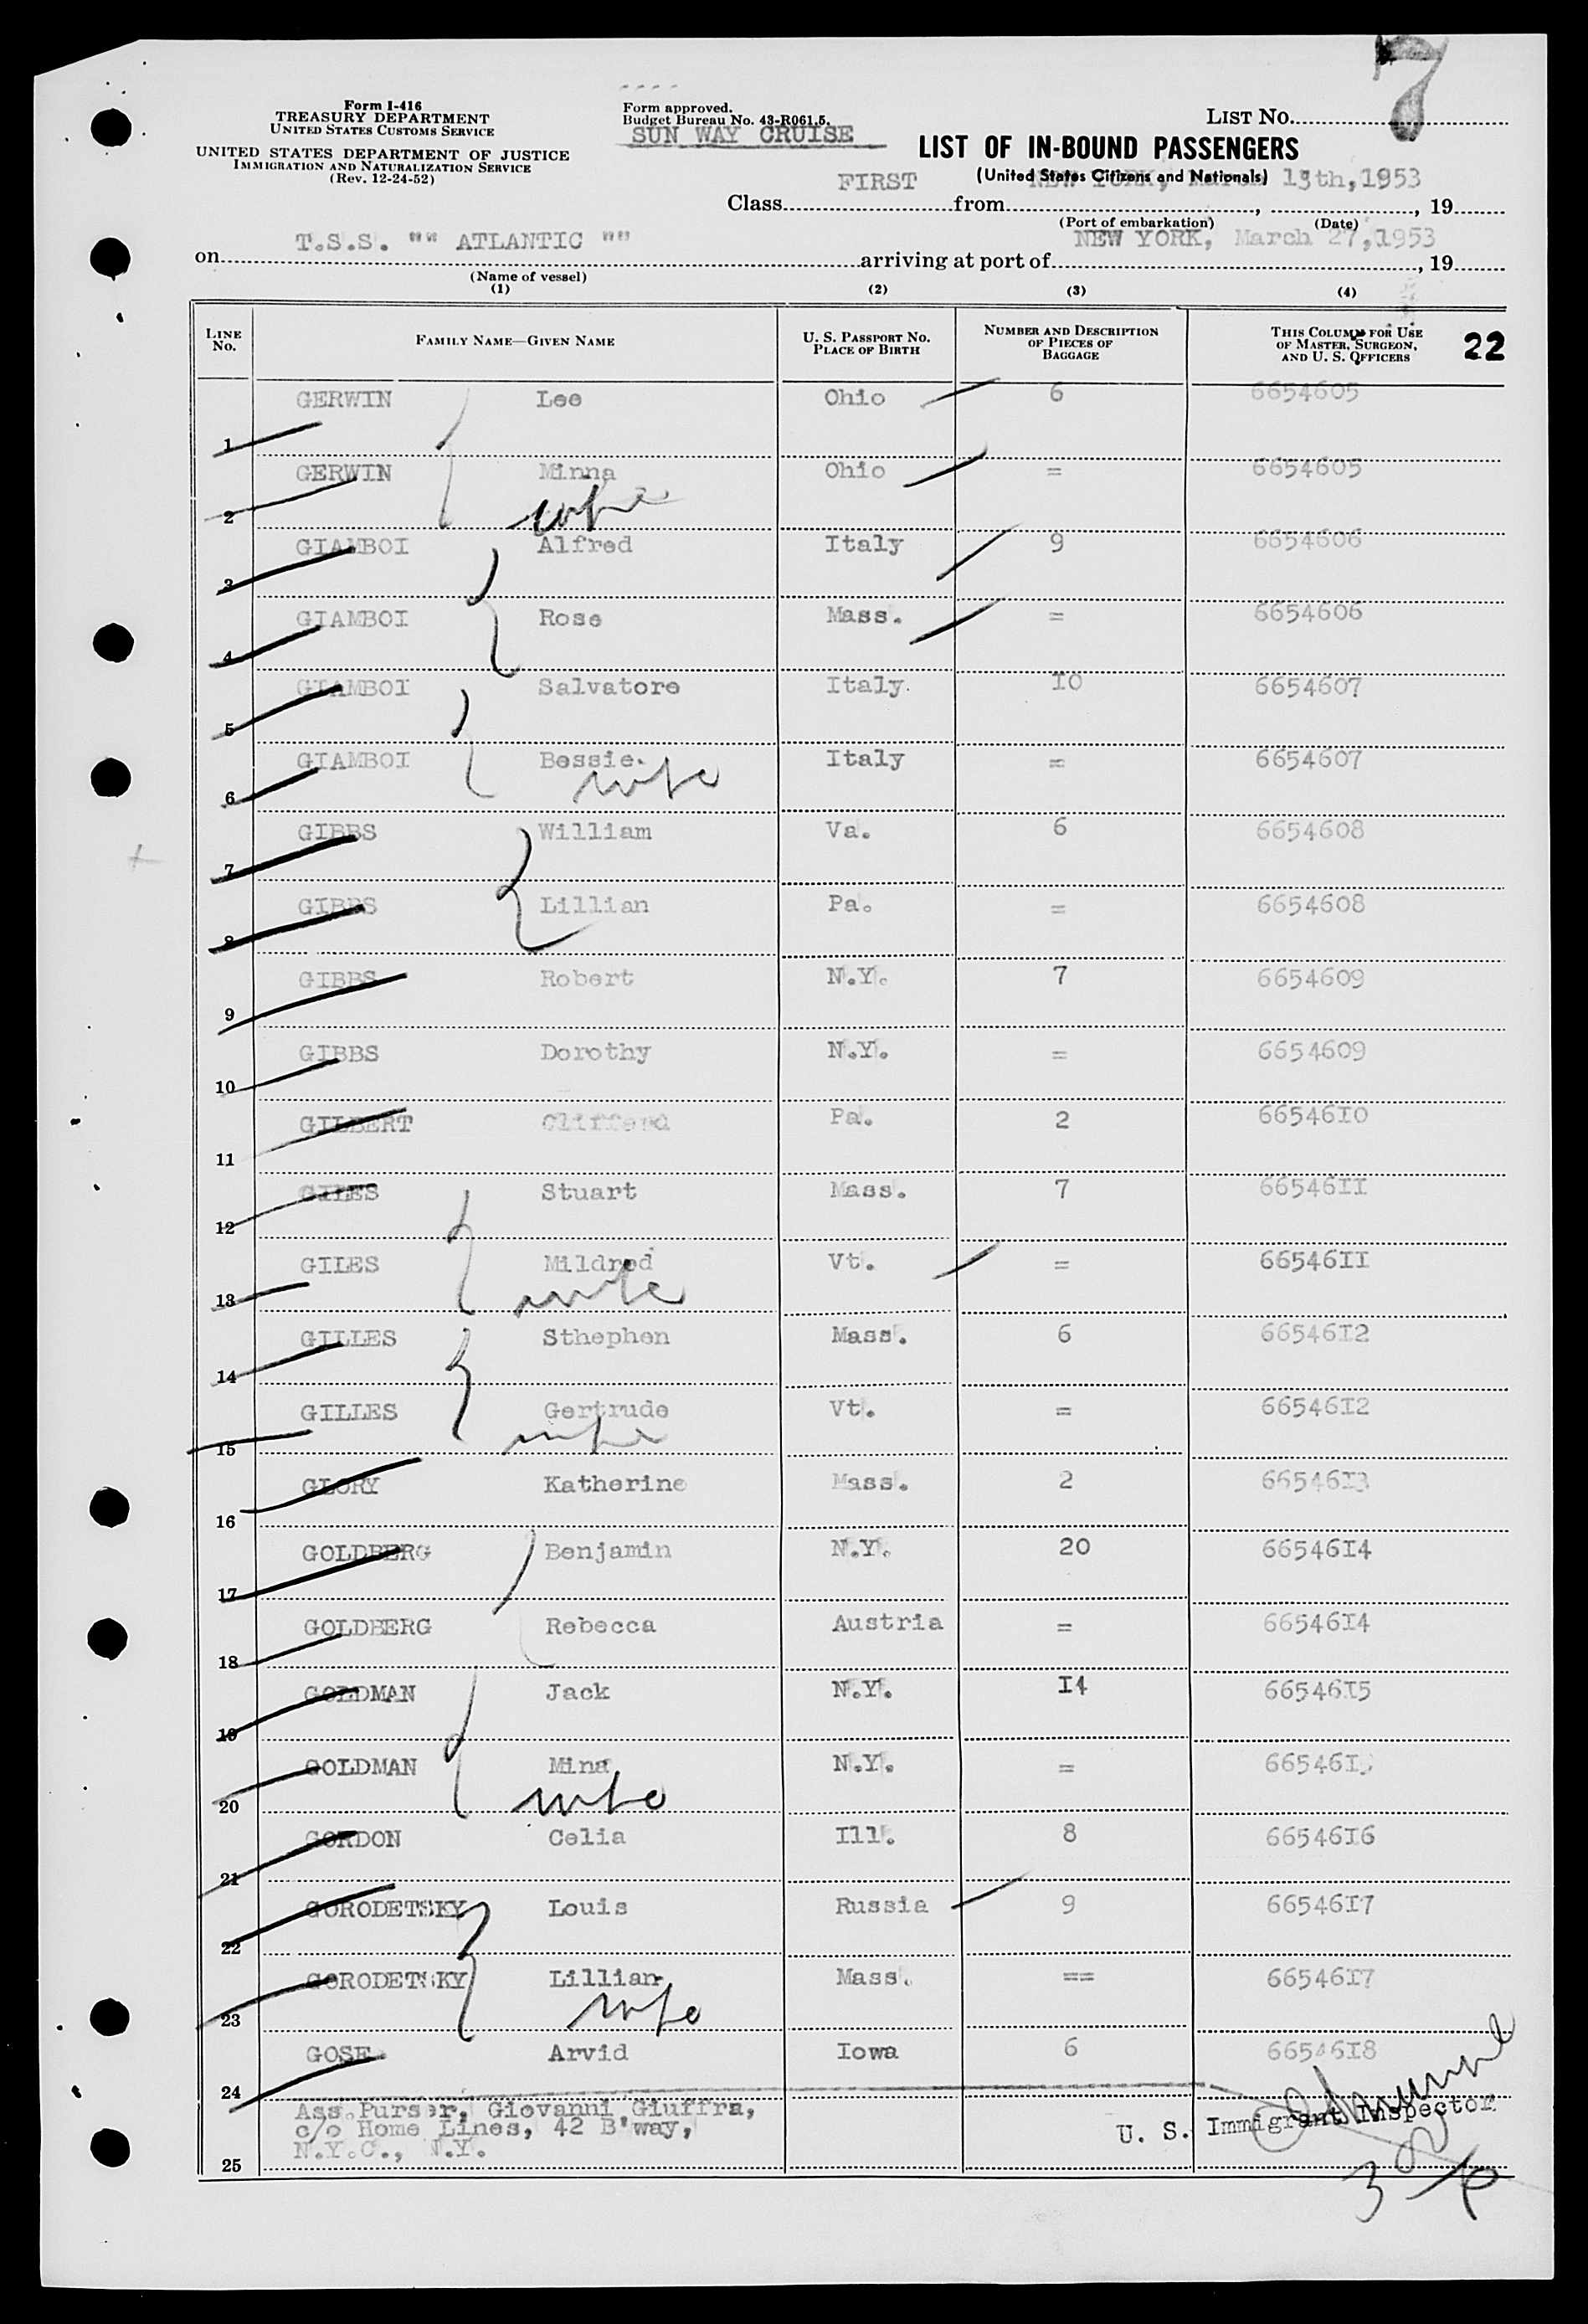 7
Form I-416
TREASURY DEPARTMENT
UNITED STATES CUSTOMS SERVICE
UNITED STATES DEPARTMENT OF JUSTICE
IMMIGRATION AND NATURALIZATION SERVICE
(Rev. 12-24-52)
Form approved.
Budget Bureau No. 43-R061.5.
SUN WAY CRUISE
LIST NO.
LIST OF IN-BOUND PASSENGERS
(United States Citizens and Nationals)
Class FIRST from NEW YORK, March 13th,1953, 19
(Port of embarkation) (Date)
on T.S.S. "" ATLANTIC "" arriving at port of NEW YORK, March 27,1953, 19
(Name of vessel)
(1) (2) (3) (4)
LINE NO. FAMILY NAME—GIVEN NAME U. S. PASSPORT NO. PLACE OF BIRTH NUMBER AND DESCRIPTION OF PIECES OF BAGGAGE THIS COLUMN FOR USE OF MASTER, SURGEON, AND U. S. OFFICERS 22
1 GERWIN Lee Ohio 6 6654605
2 GERWIN Minna Ohio = 6654605
wife
3 GIAMBOI Alfred Italy 9 6654606
4 GIAMBOI Rose Mass. = 6654606
5 GIAMBOI Salvatore Italy. I0 6654607
6 GIAMBOI Bessie. Italy = 6654607
wife
7 GIBBS William Va. 6 6654608
8 GIBBS Lillian Pa. = 6654608
9 GIBBS Robert N.Y. 7 6654609
10 GIBBS Dorothy N.Y. = 6654609
11 GILBERT Clifford Pa. 2 66546I0
12 GILES Stuart Mass. 7 66546II
13 GILES Mildred Vt. = 66546II
wife
14 GILLES Sthephen Mass. 6 66546I2
15 GILLES Gertrude Vt. = 66546I2
wife
16 GLORY Katherine Mass. 2 66546I3
17 GOLDBERG Benjamin N.Y. 20 66546I4
18 GOLDBERG Rebecca Austria = 66546I4
19 GOLDMAN Jack N.Y. I4 66546I5
20 GOLDMAN Mina N.Y. =
wife
21 GORDON Celia Ill. 8 66546I6
22 GORODETSKY Louis Russia 9 66546I7
23 GORODETSKY Lillian Mass. == 66546I7
wife
24 GOSE Arvid Iowa 6 66546I8
Ass.Purser, Giovanni Giuffra,
c/o Home Lines, 42 B'way,
N.Y.C., N.Y.
U. S. Immigrant Inspector
25